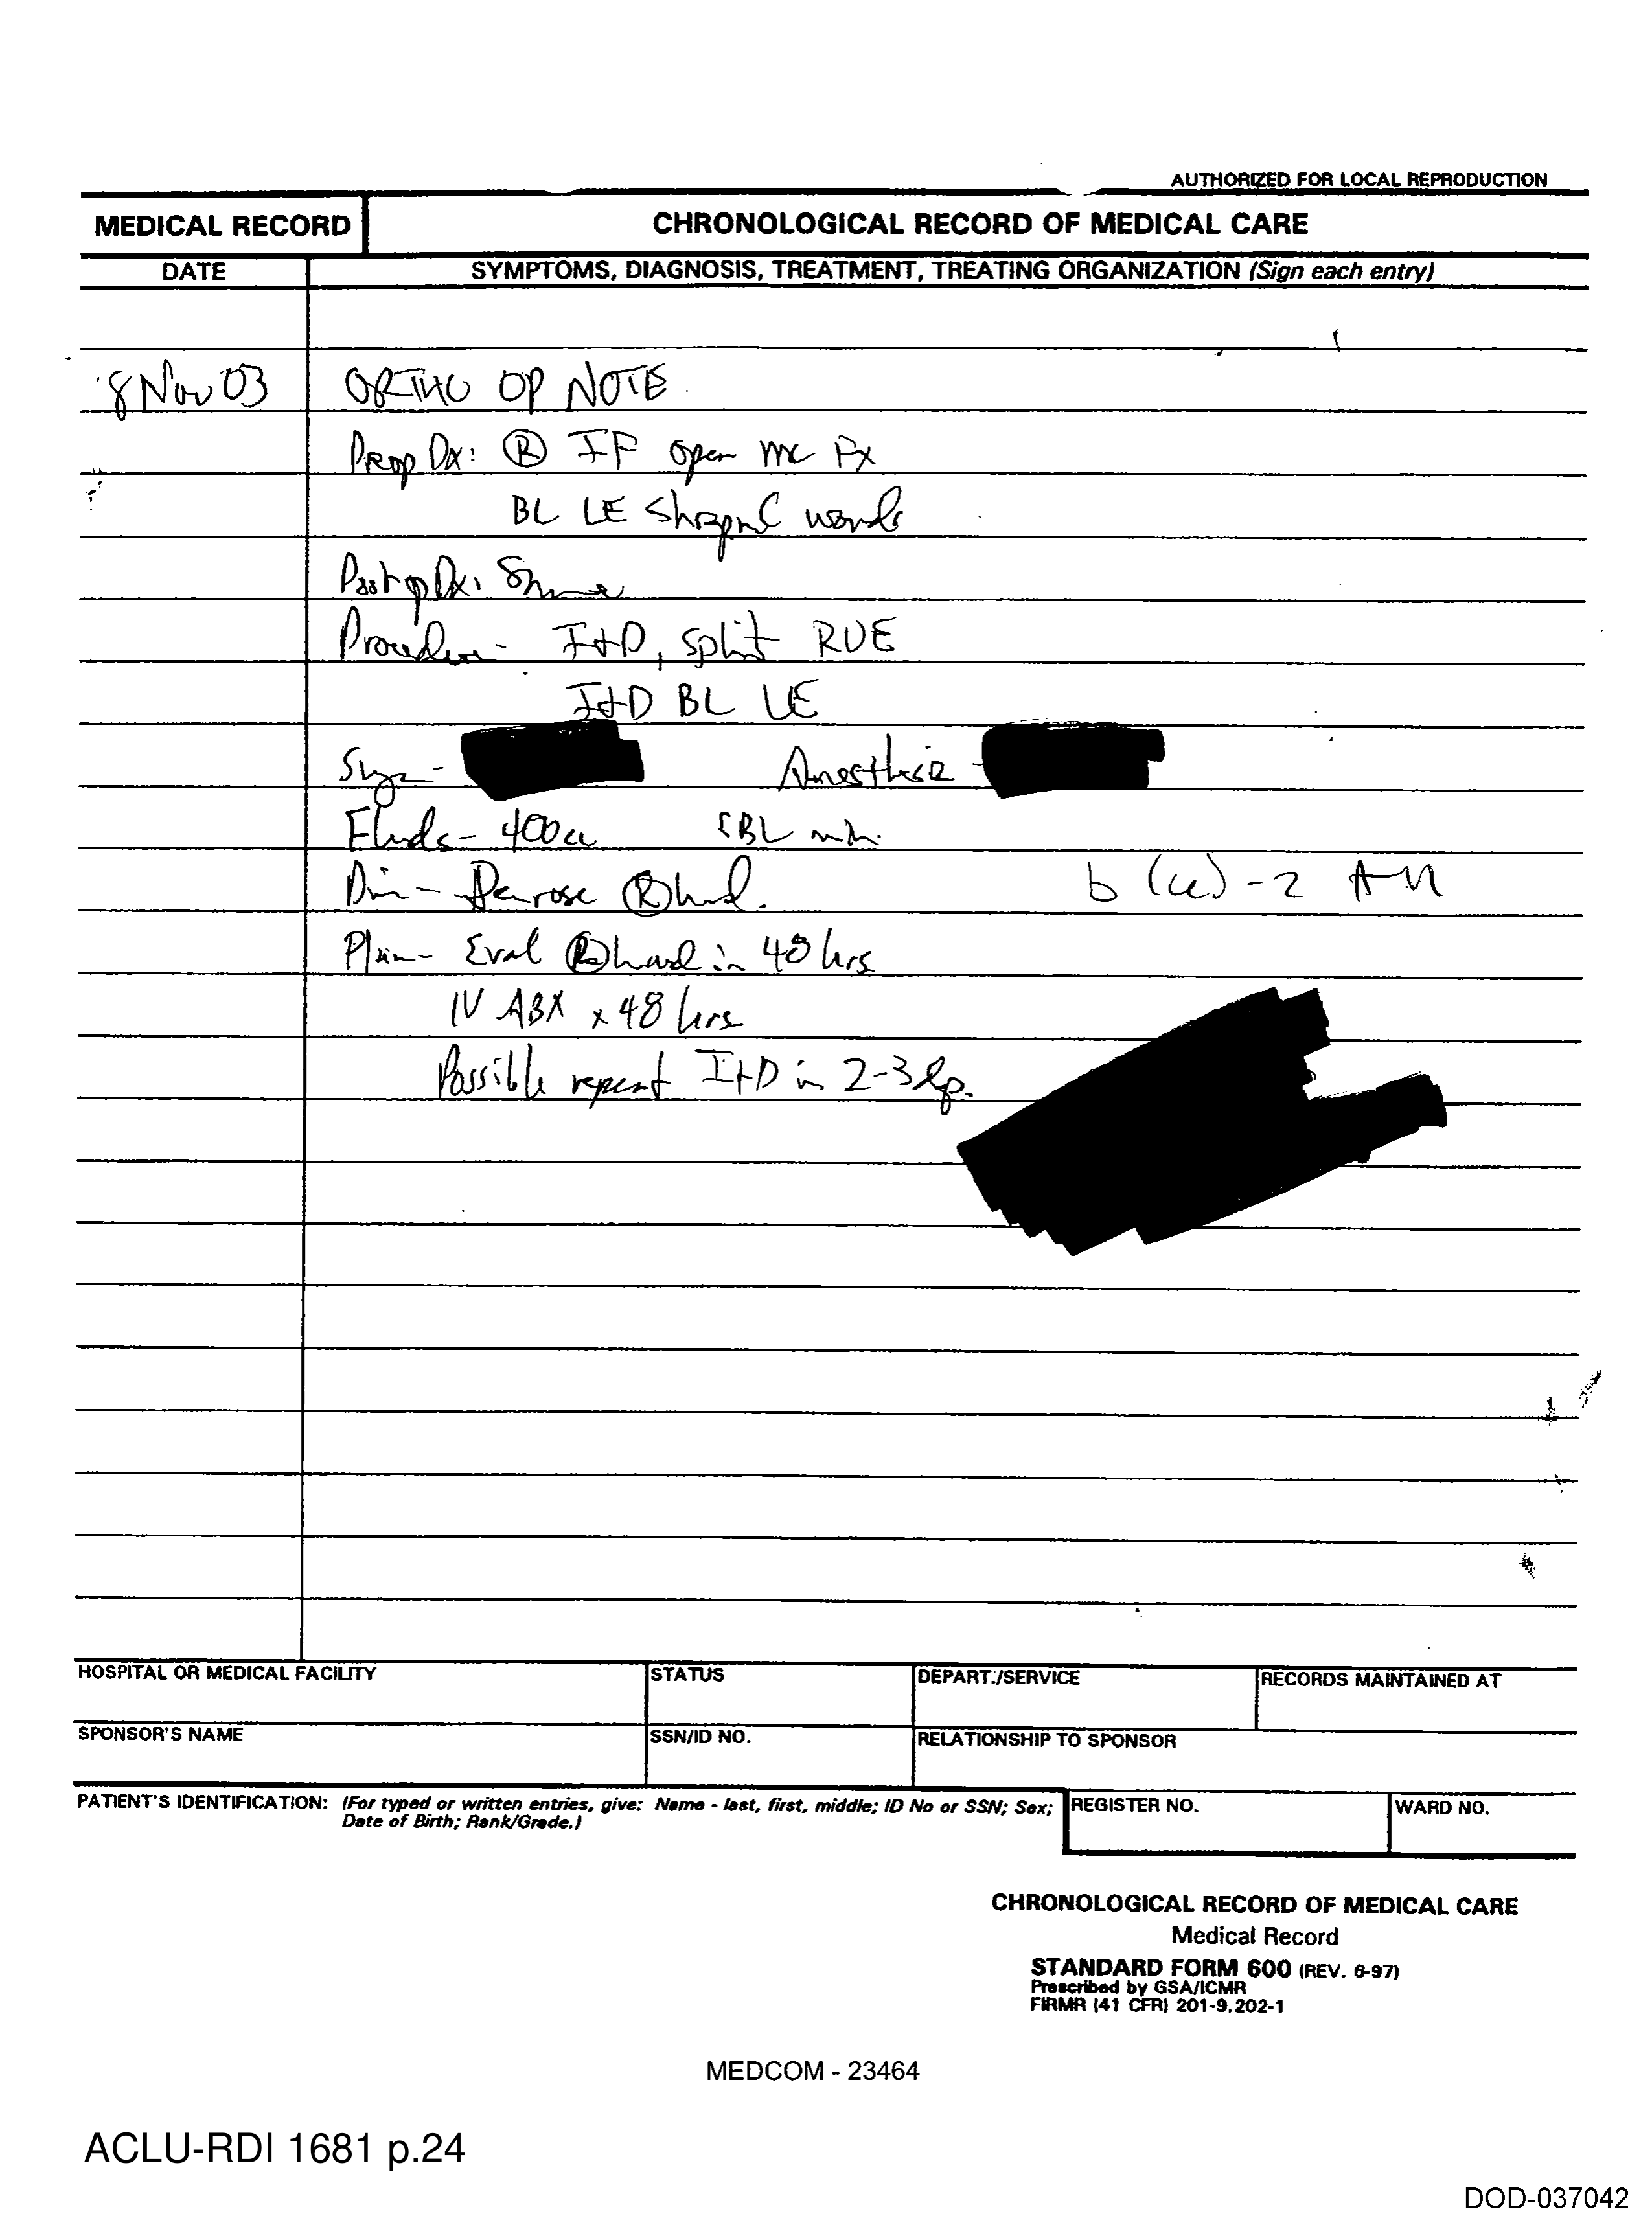 AUTHORIZED FOR LOCAL REPRODUCTION
MEDICAL RECORD CHRONOLOGICAL RECORD OF MEDICAL CARE
DATE SYMPTOMS, DIAGNOSIS, TREATMENT, TREATING ORGANIZATION (Sign each entry)
8 Nov 03 ORTHO OP NOTE
Preop Dx: Ⓡ IF open mc Fx
BL LE Shrapnel wounds
Postop Dx: Same
Procedure - I+D, split RUE
I+D BL LE
Surgeon - Anesthesia -
Fluids - 400cc EBL min.
Drain - Penrose Ⓡ hand.
b(6)-2 All
Plan - Eval Ⓡ hand in 48 hrs
IV ABX x 48 hrs
Possible repeat I+D in 2-3 days.
HOSPITAL OR MEDICAL FACILITY STATUS DEPART./SERVICE RECORDS MAINTAINED AT
SPONSOR'S NAME SSN/ID NO. RELATIONSHIP TO SPONSOR
PATIENT'S IDENTIFICATION: (For typed or written entries, give: Name - last, first, middle; ID No or SSN; Sex; REGISTER NO. WARD NO.
Date of Birth; Rank/Grade.)
CHRONOLOGICAL RECORD OF MEDICAL CARE
Medical Record
STANDARD FORM 600 (REV. 6-97)
Prescribed by GSA/ICMR
FIRMR (41 CFR) 201-9.202-1
MEDCOM - 23464
ACLU-RDI 1681 p.24
DOD-037042